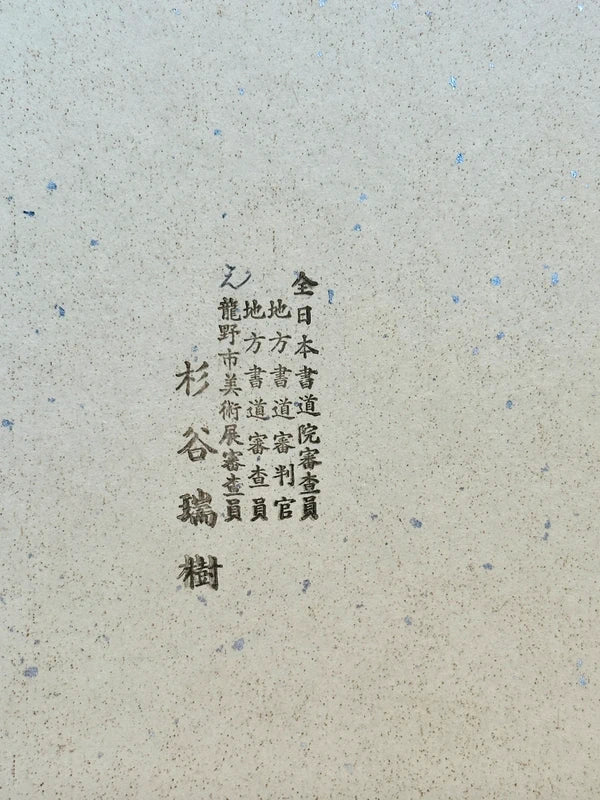 全日本書道院審査員
地方書道審判官
地方書道審査員
元龍野市美術展審査員
杉谷瑞樹